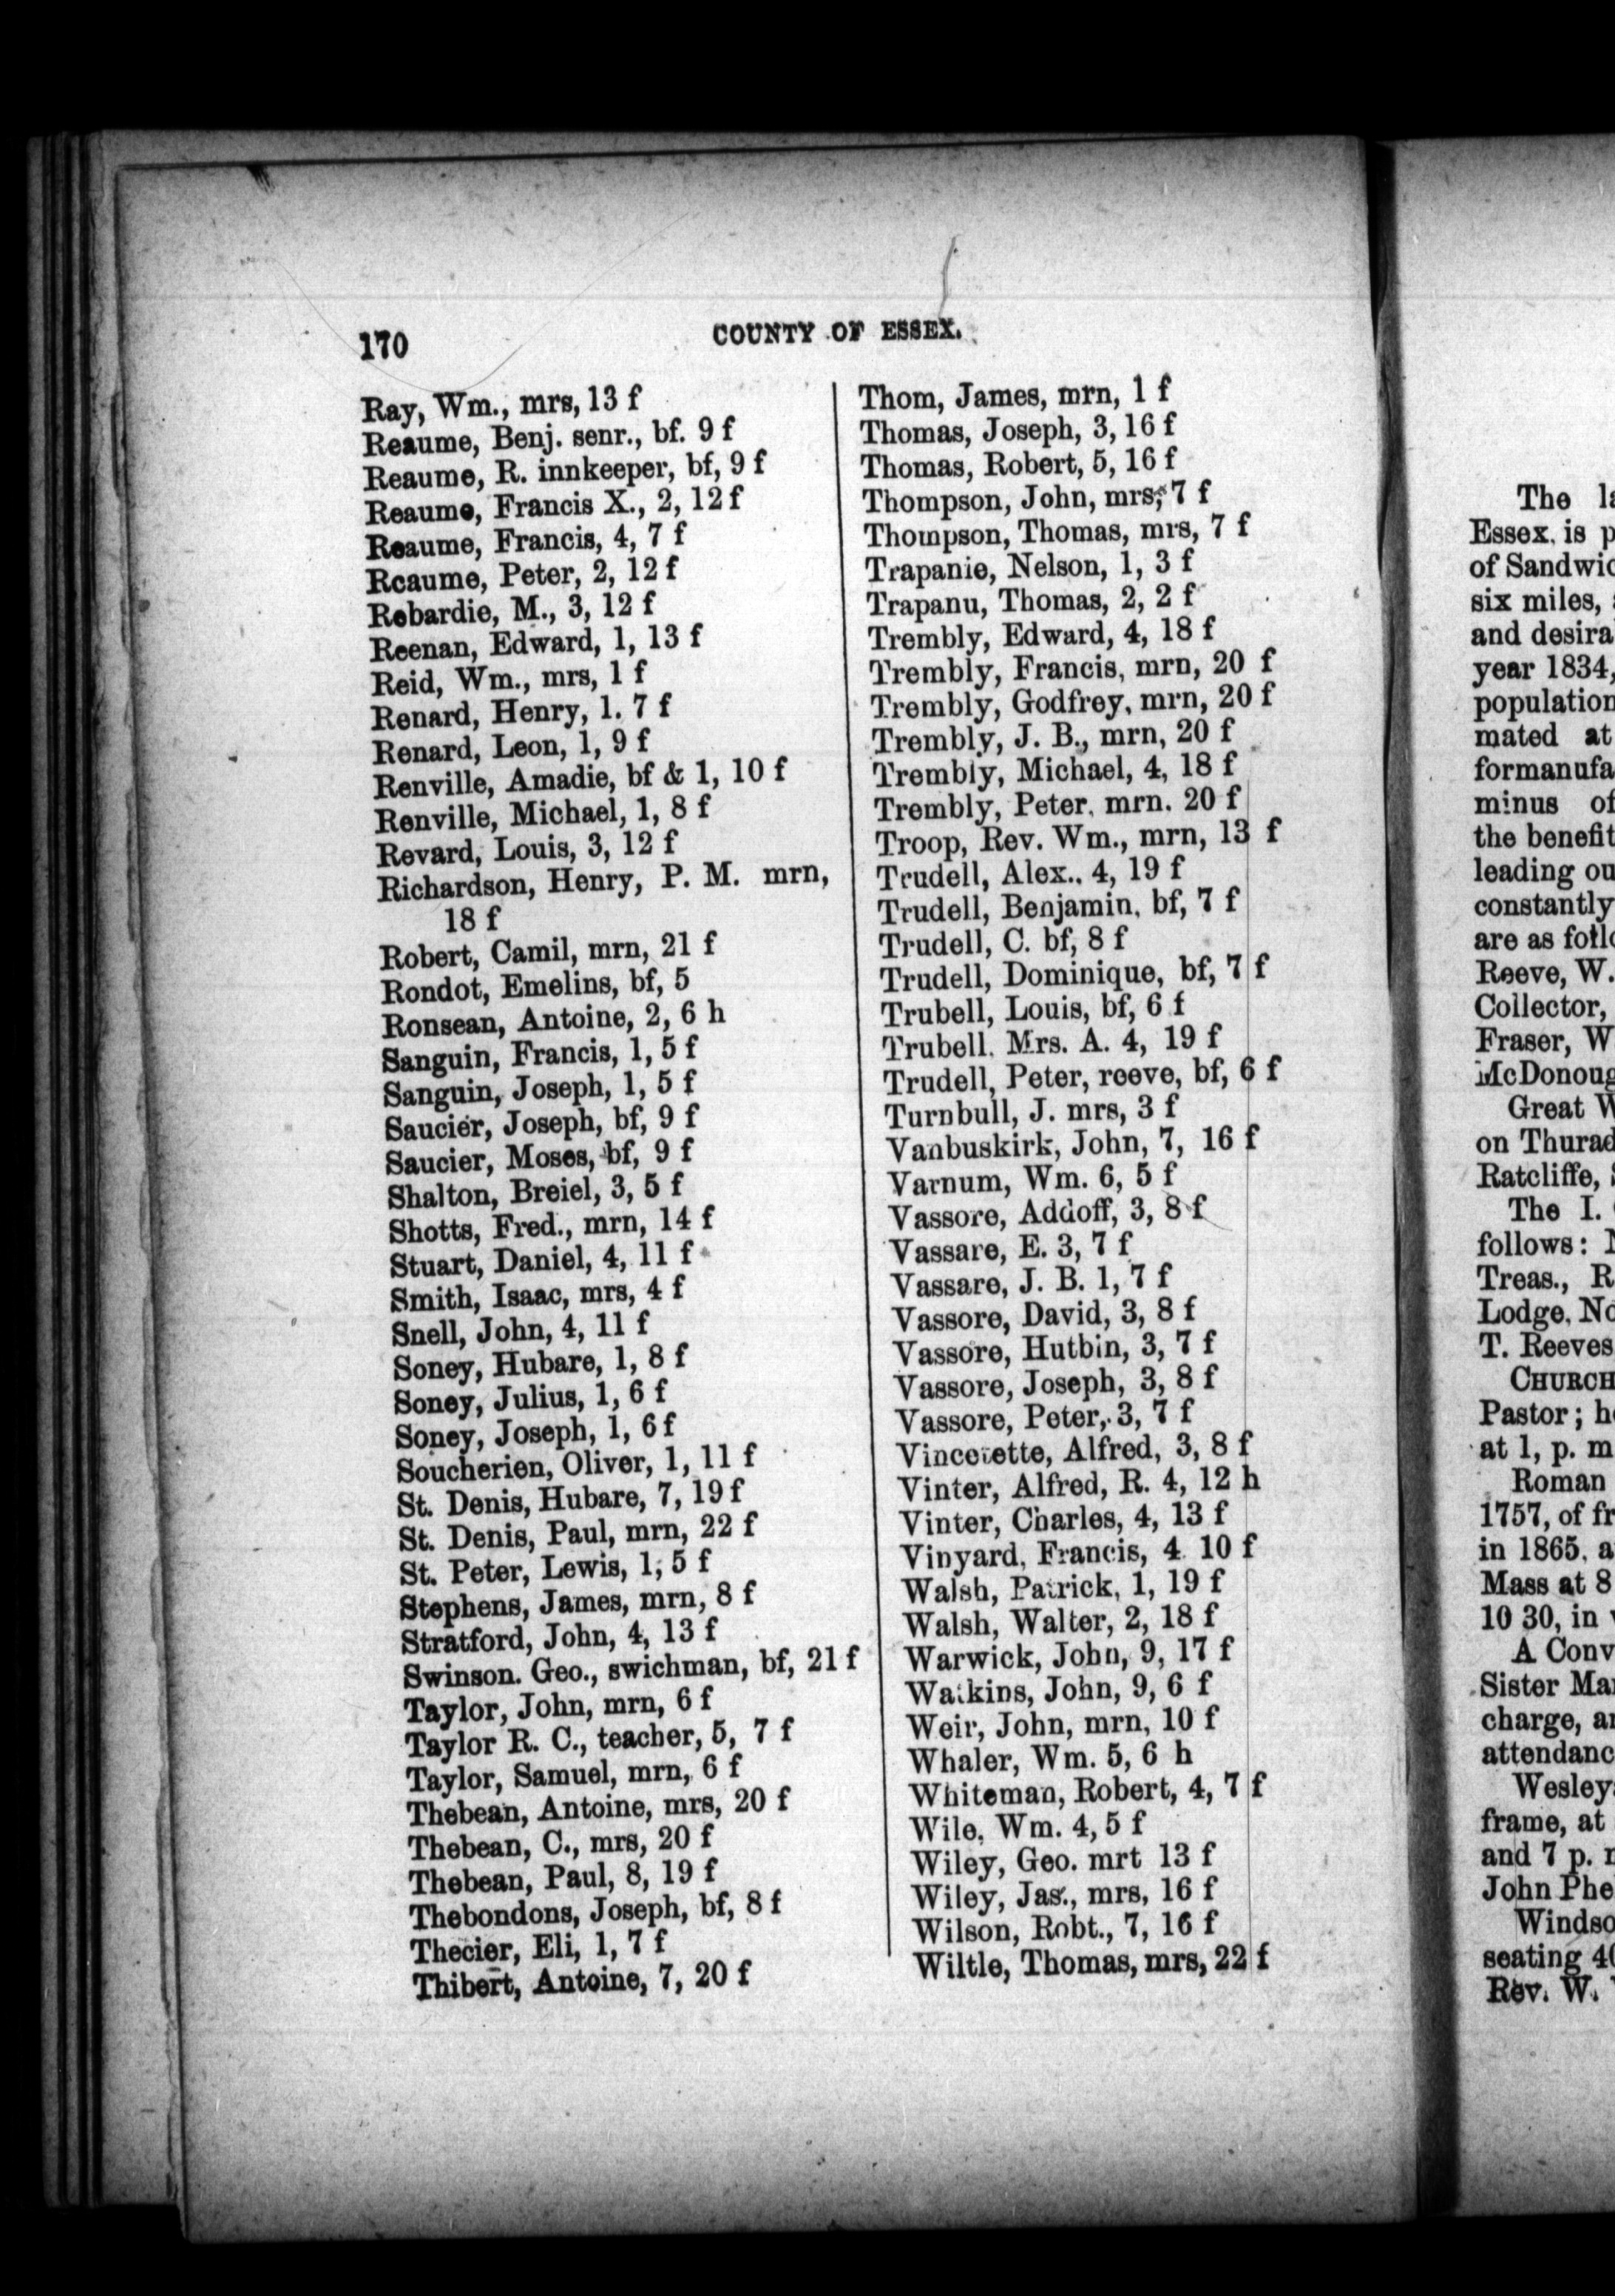 170
COUNTY OF ESSEX.
Ray, Wm., mrs, 13 f
Reaume, Benj. senr., bf. 9 f
Reaume, R. innkeeper, bf, 9 f
Reaume, Francis X., 2, 12 f
Reaume, Francis, 4, 7 f
Rcaume, Peter, 2, 12 f
Rebardie, M., 3, 12 f
Reenan, Edward, 1, 13 f
Reid, Wm., mrs, 1 f
Renard, Henry, 1. 7 f
Renard, Leon, 1, 9 f
Renville, Amadie, bf & 1, 10 f
Renville, Michael, 1, 8 f
Revard, Louis, 3, 12 f
Richardson, Henry, P. M. mrn,
18 f
Robert, Camil, mrn, 21 f
Rondot, Emelins, bf, 5
Ronsean, Antoine, 2, 6 h
Sanguin, Francis, 1, 5 f
Sanguin, Joseph, 1, 5 f
Saucier, Joseph, bf, 9 f
Saucier, Moses, bf, 9 f
Shalton, Breiel, 3, 5 f
Shotts, Fred., mrn, 14 f
Stuart, Daniel, 4, 11 f
Smith, Isaac, mrs, 4 f
Snell, John, 4, 11 f
Soney, Hubare, 1, 8 f
Soney, Julius, 1, 6 f
Soney, Joseph, 1, 6 f
Soucherien, Oliver, 1, 11 f
St. Denis, Hubare, 7, 19 f
St. Denis, Paul, mrn, 22 f
St. Peter, Lewis, 1, 5 f
Stephens, James, mrn, 8 f
Stratford, John, 4, 13 f
Swinson. Geo., swichman, bf, 21 f
Taylor, John, mrn, 6 f
Taylor R. C., teacher, 5, 7 f
Taylor, Samuel, mrn, 6 f
Thebean, Antoine, mrs, 20 f
Thebean, C., mrs, 20 f
Thebean, Paul, 8, 19 f
Thebondons, Joseph, bf, 8 f
Thecier, Eli, 1, 7 f
Thibert, Antoine, 7, 20 f
Thom, James, mrn, 1 f
Thomas, Joseph, 3, 16 f
Thomas, Robert, 5, 16 f
Thompson, John, mrs, 7 f
Thompson, Thomas, mrs, 7 f
Trapanie, Nelson, 1, 3 f
Trapanu, Thomas, 2, 2 f
Trembly, Edward, 4, 18 f
Trembly, Francis, mrn, 20 f
Trembly, Godfrey, mrn, 20 f
Trembly, J. B., mrn, 20 f
Trembly, Michael, 4, 18 f
Trembly, Peter, mrn. 20 f
Troop, Rev. Wm., mrn, 13 f
Trudell, Alex.. 4, 19 f
Trudell, Benjamin, bf, 7 f
Trudell, C. bf, 8 f
Trudell, Dominique, bf, 7 f
Trubell, Louis, bf, 6 f
Trubell. Mrs. A. 4, 19 f
Trudell, Peter, reeve, bf, 6 f
Turnbull, J. mrs, 3 f
Vanbuskirk, John, 7, 16 f
Varnum, Wm. 6, 5 f
Vassore, Addoff, 3, 8 f
Vassare, E. 3, 7 f
Vassare, J. B. 1, 7 f
Vassore, David, 3, 8 f
Vassore, Hutbin, 3, 7 f
Vassore, Joseph, 3, 8 f
Vassore, Peter, 3, 7 f
Vincetette, Alfred, 3, 8 f
Vinter, Alfred, R. 4, 12 h
Vinter, Charles, 4, 13 f
Vinyard, Francis, 4 10 f
Walsh, Patrick, 1, 19 f
Walsh, Walter, 2, 18 f
Warwick, John, 9, 17 f
Watkins, John, 9, 6 f
Weir, John, mrn, 10 f
Whaler, Wm. 5, 6 h
Whiteman, Robert, 4, 7 f
Wile, Wm. 4, 5 f
Wiley, Geo. mrt 13 f
Wiley, Jas., mrs, 16 f
Wilson, Robt., 7, 16 f
Wiltle, Thomas, mrs, 22 f
The la
Essex, is p
of Sandwic
six miles,
and desira
year 1834,
population
mated at
formanufa
minus of
the benefit
leading ou
constantly
are as follo
Reeve, W.
Collector,
Fraser, W
McDonoug
Great W
on Thurad
Ratcliffe,
The I.
follows: N
Treas., R
Lodge, No
T. Reeves
CHURCH
Pastor; h
at 1, p. m
Roman
1757, of fr
in 1865, a
Mass at 8
10 30, in
A Conv
Sister Mar
charge, an
attendanc
Wesley
frame, at
and 7 p. m
John Phe
Windso
seating 40
Rev. W.